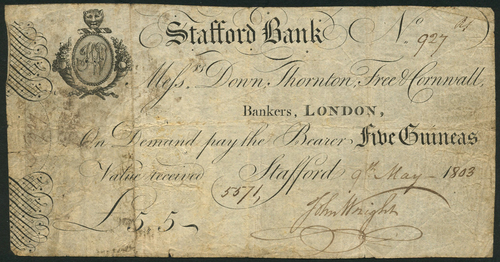 Stafford Bank No. 927
Mess.rs Down, Thornton, Free & Cornwall,
Bankers, LONDON,
On Demand pay the Bearer Five Guineas
Value received Stafford 9th May 1803
5571
£5,5 –
John Wright